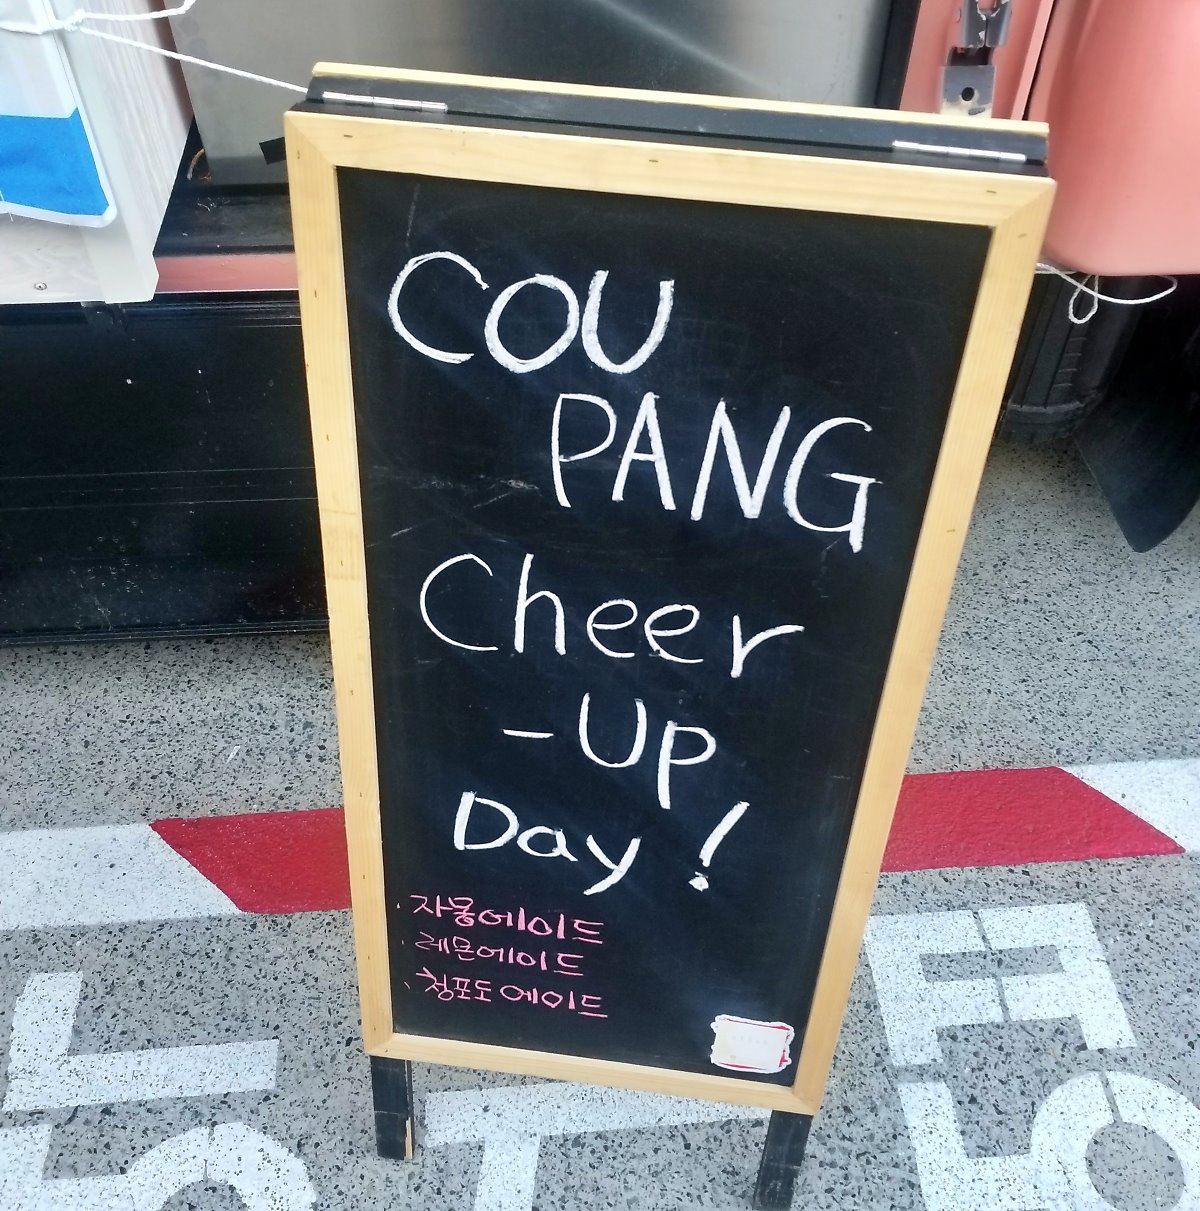 COU
PANG
Cheer
-UP
Day!
· 자몽에이드
· 레몬에이드
· 청포도 에이드